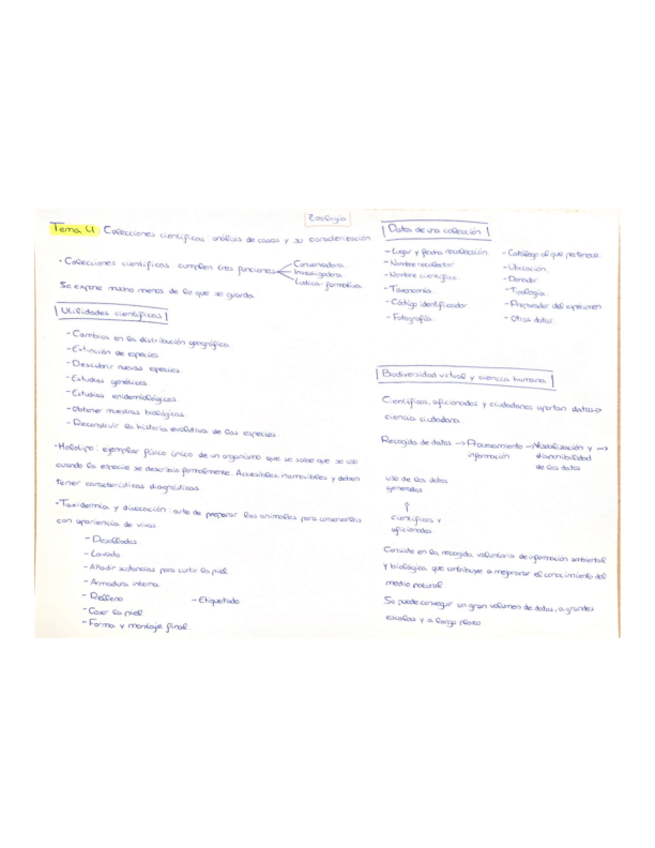 Zoología
Tema 4 Colecciones científicas: análisis de casos y su caracterización
· Colecciones científicas cumplen tres funciones
Conservadora.
Investigadora.
Lúdica-formativa
Se expone mucho menos de lo que se guarda.
Utilidades científicas
- Cambios en la distribución geográfica
- Extinción de especies
- Descubrir nuevas especies
- Estudios genéticos
- Estudios epidemiológicos
- Obtener muestras biológicas
- Reconstruir la historia evolutiva de las especies.
· Holotipo: ejemplar físico único de un organismo que se sabe que se usó
cuando la especie se describió formalmente. Accesibles, inamovibles y deben
tener características diagnósticas.
· Taxidermia y disección: arte de preparar los animales para conservarlos
con apariencia de vivos.
- Desollados
- Lavado
- Añadir sustancias para curtir la piel
- Armadura interna.
- Relleno
- Etiquetado
- Coser la piel
- Forma y montaje final.
Datos de una colección
- Lugar y fecha recolección.
- Nombre recolector
- Nombre científico.
- Taxonomía
- Código identificador.
- Fotografía.
- Catálogo al que pertenece.
- Ubicación.
- Donador
- Tipología.
- Preparador del espécimen
- Otros datos.
Biodiversidad virtual y ciencia humana
Científicos, aficionados y ciudadanos aportan datos →
ciencia ciudadana.
Recogida de datos → Procesamiento → Visualización y →
información disponibilidad
de los datos
uso de los datos
generados
↑
científicos y
aficionados
Consiste en la recogida, voluntaria de información ambiental
y biológica, que contribuye a mejorar el conocimiento del
medio natural.
Se puede conseguir un gran volumen de datos, a grandes
escalas y a largo plazo.